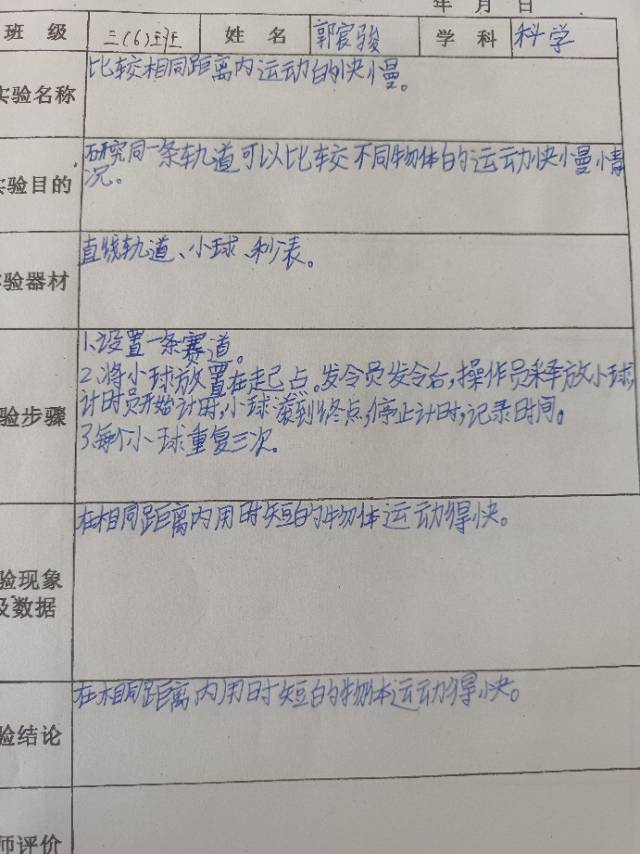 年 月 日
班 级 三(6)班 姓 名 郭宸骏 学 科 科学
实验名称 比较相同距离内运动的快慢。
实验目的 研究同一条轨道可以比较不同物体的运动快慢情
况。
验器材 直线轨道、小球、秒表。
1.设置一条赛道。
2.将小球放置在起点。发令员发令后,操作员释放小球,
验步骤 计时员开始计时,小球滚到终点,停止计时,记录时间。
3每个小球重复三次。
在相同距离内用时短的物体运动得快。
验现象
及数据
在相同距离内用时短的物体运动得快。
验结论
师评价